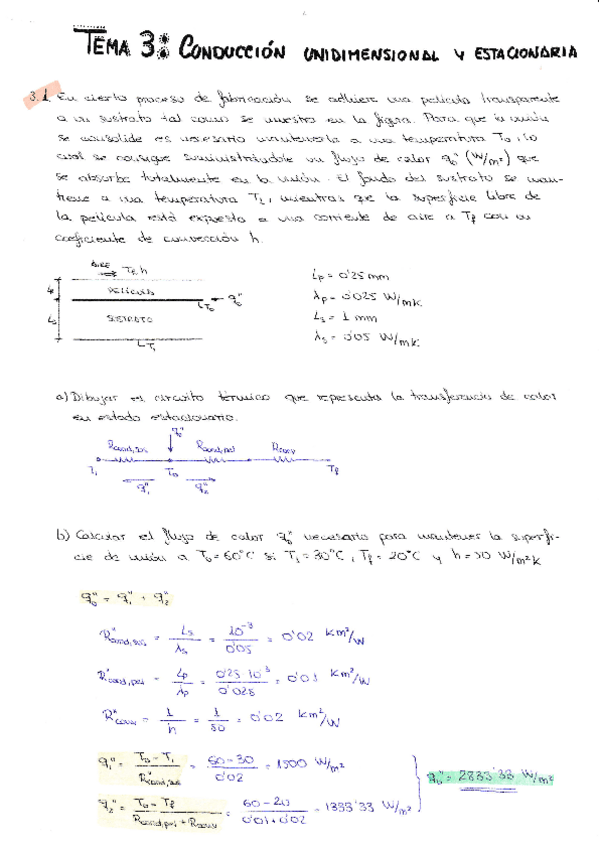 TEMA 3: CONDUCCIÓN UNIDIMENSIONAL Y ESTACIONARIA
3.1. En cierto proceso de fabricación se adhiere una película transparente
a un sustrato tal como se muestra en la figura. Para que la unión
se consolide es necesario mantenerla a una temperatura T₀, lo
cual se consigue suministrándole un flujo de calor q₀" (W/m²) que
se absorbe totalmente en la unión. El fondo del sustrato se man-
tiene a una temperatura T₁, mientras que la superficie libre de
la película está expuesta a una corriente de aire a Tf con un
coeficiente de convección h.
AIRE
Tf, h
Lp
PELÍCULA
T₀
q₀"
Ls
SUSTRATO
T₁
Lp = 0'25 mm
λp = 0'025 W/mK
Ls = 1 mm
λs = 0'05 W/mK
a) Dibujar el circuito térmico que representa la transferencia de calor
en estado estacionario.
q₀"
Rcond,sus Rcond,pel Rconv
T₁ T₀ Tf
q₁" q₂"
b) Calcular el flujo de calor q₀" necesario para mantener la superfi-
cie de unión a T₀ = 60°C si T₁ = 30°C, Tf = 20°C y h = 50 W/m²K
q₀" = q₁" + q₂"
R"cond,sus = Ls/λs = 10⁻³/0'05 = 0'02 Km²/W
R"cond,pel = Lp/λp = 0'25·10⁻³/0'025 = 0'01 Km²/W
R"conv = 1/h = 1/50 = 0'02 Km²/W
q₁" = T₀ - T₁/R"cond,sus = 60-30/0'02 = 1500 W/m²
q₂" = T₀ - Tf/Rcond,pel + Rconv = 60-20/0'01+0'02 = 1333'33 W/m²
q₀" = 2833'33 W/m²